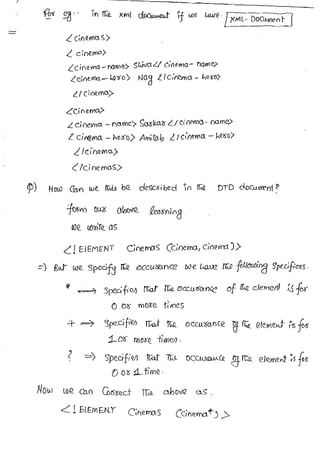 For eg:- in the xml document if we have.
XML-Document
<cinemas>
<cinema>
<cinema-name> Shiva </cinema-name>
<cinema-hero> Nag </cinema-hero>
</cinema>
<cinema>
<cinema-name> Sarkar </cinema-name>
<cinema-hero> Amitab </cinema-hero>
</cinema>
</cinemas>
φ) How can we this be described in the DTD document?
form our above learning
we write as
<! ELEMENT Cinemas (cinema, cinema)>
=) But we specify the occurance we have the following specifiers.
* → specifies that the occurance of the element is for
0 or more times
+ → specifies that the occurance of the element is for
1 or more times.
? ⇒ specifies that the occurance of the element is for
0 or 1 time.
Now we can correct the above as.
<! ELEMENT Cinemas (cinema+)>